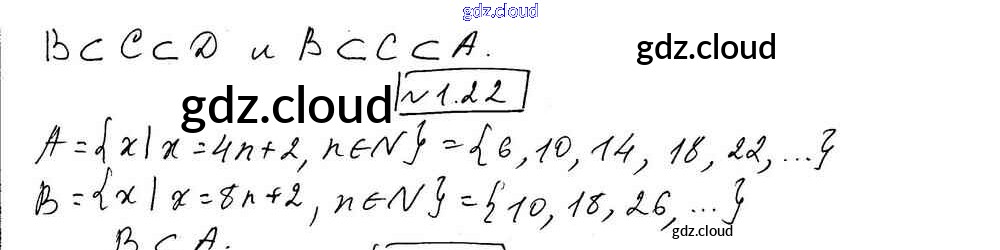 gdz.cloud
B ⊂ C ⊂ D и B ⊂ C ⊂ A.
gdz.cloud
gdz.cloud
№1.22
A = {x | x = 4n+2, n ∈ N} = {6, 10, 14, 18, 22, ...}
B = {x | x = 8n+2, n ∈ N} = {10, 18, 26, ...}
gdz.cloud
B ⊂ A.